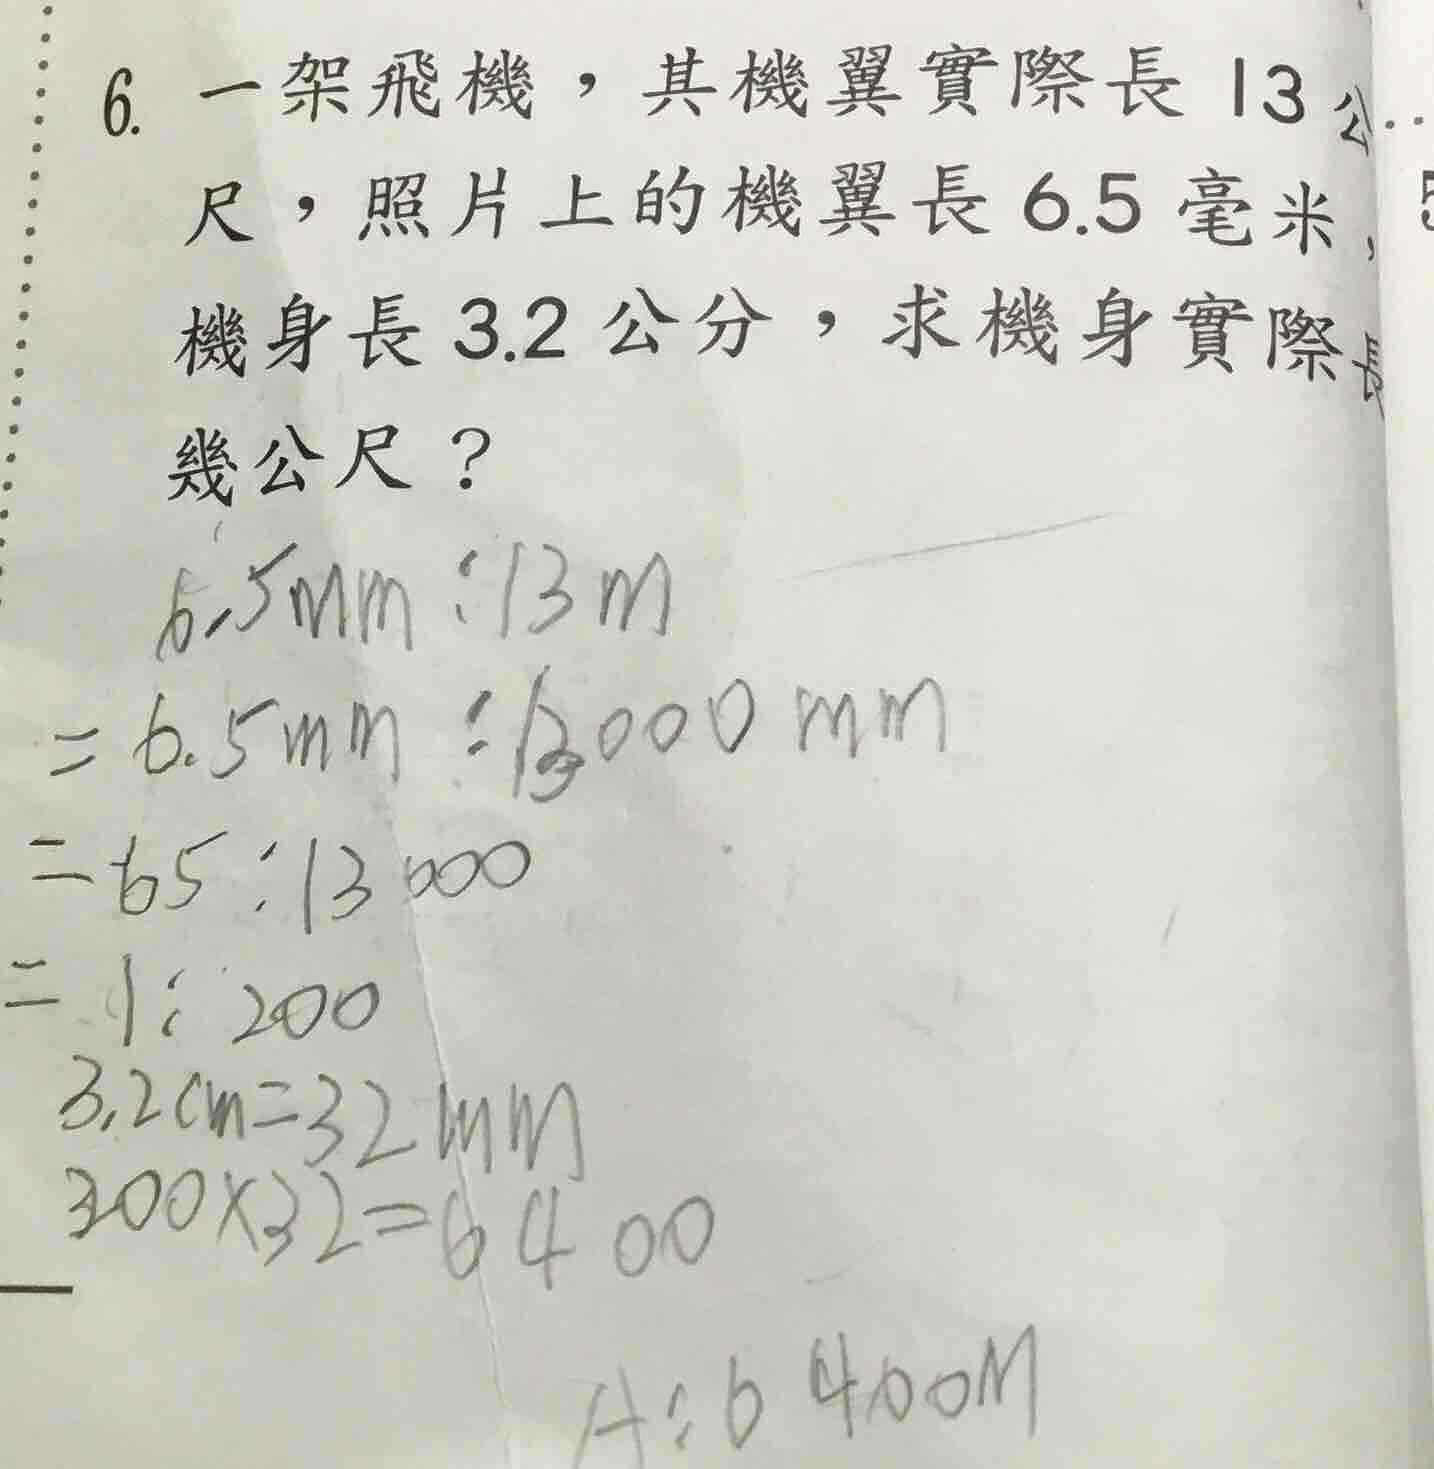 6. 一架飛機，其機翼實際長 13 公
尺，照片上的機翼長 6.5 毫米，
機身長 3.2 公分，求機身實際長
幾公尺？
6.5mm：13m
= 6.5mm：13000mm
= 65：13000
= 1：200
3.2cm=32mm
200×32=6400
A：6400M